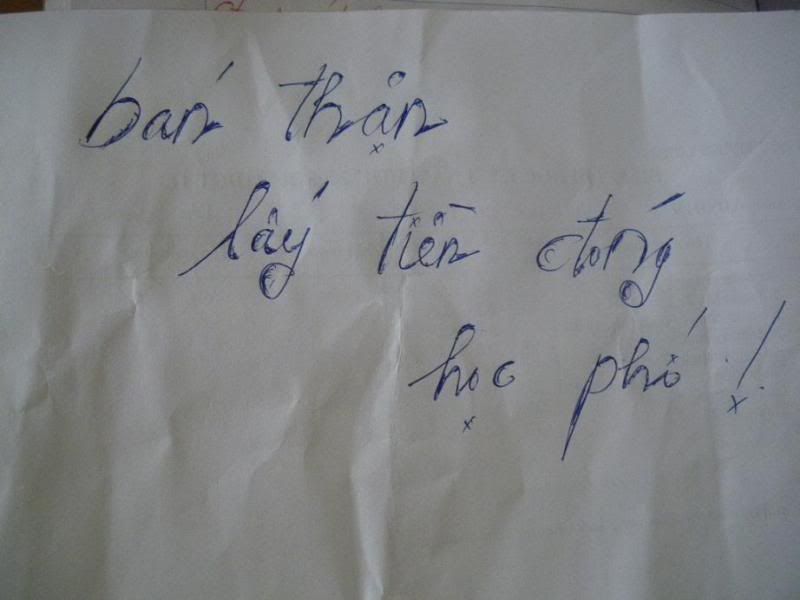 bán thận
lấy tiền đóng
học phí !